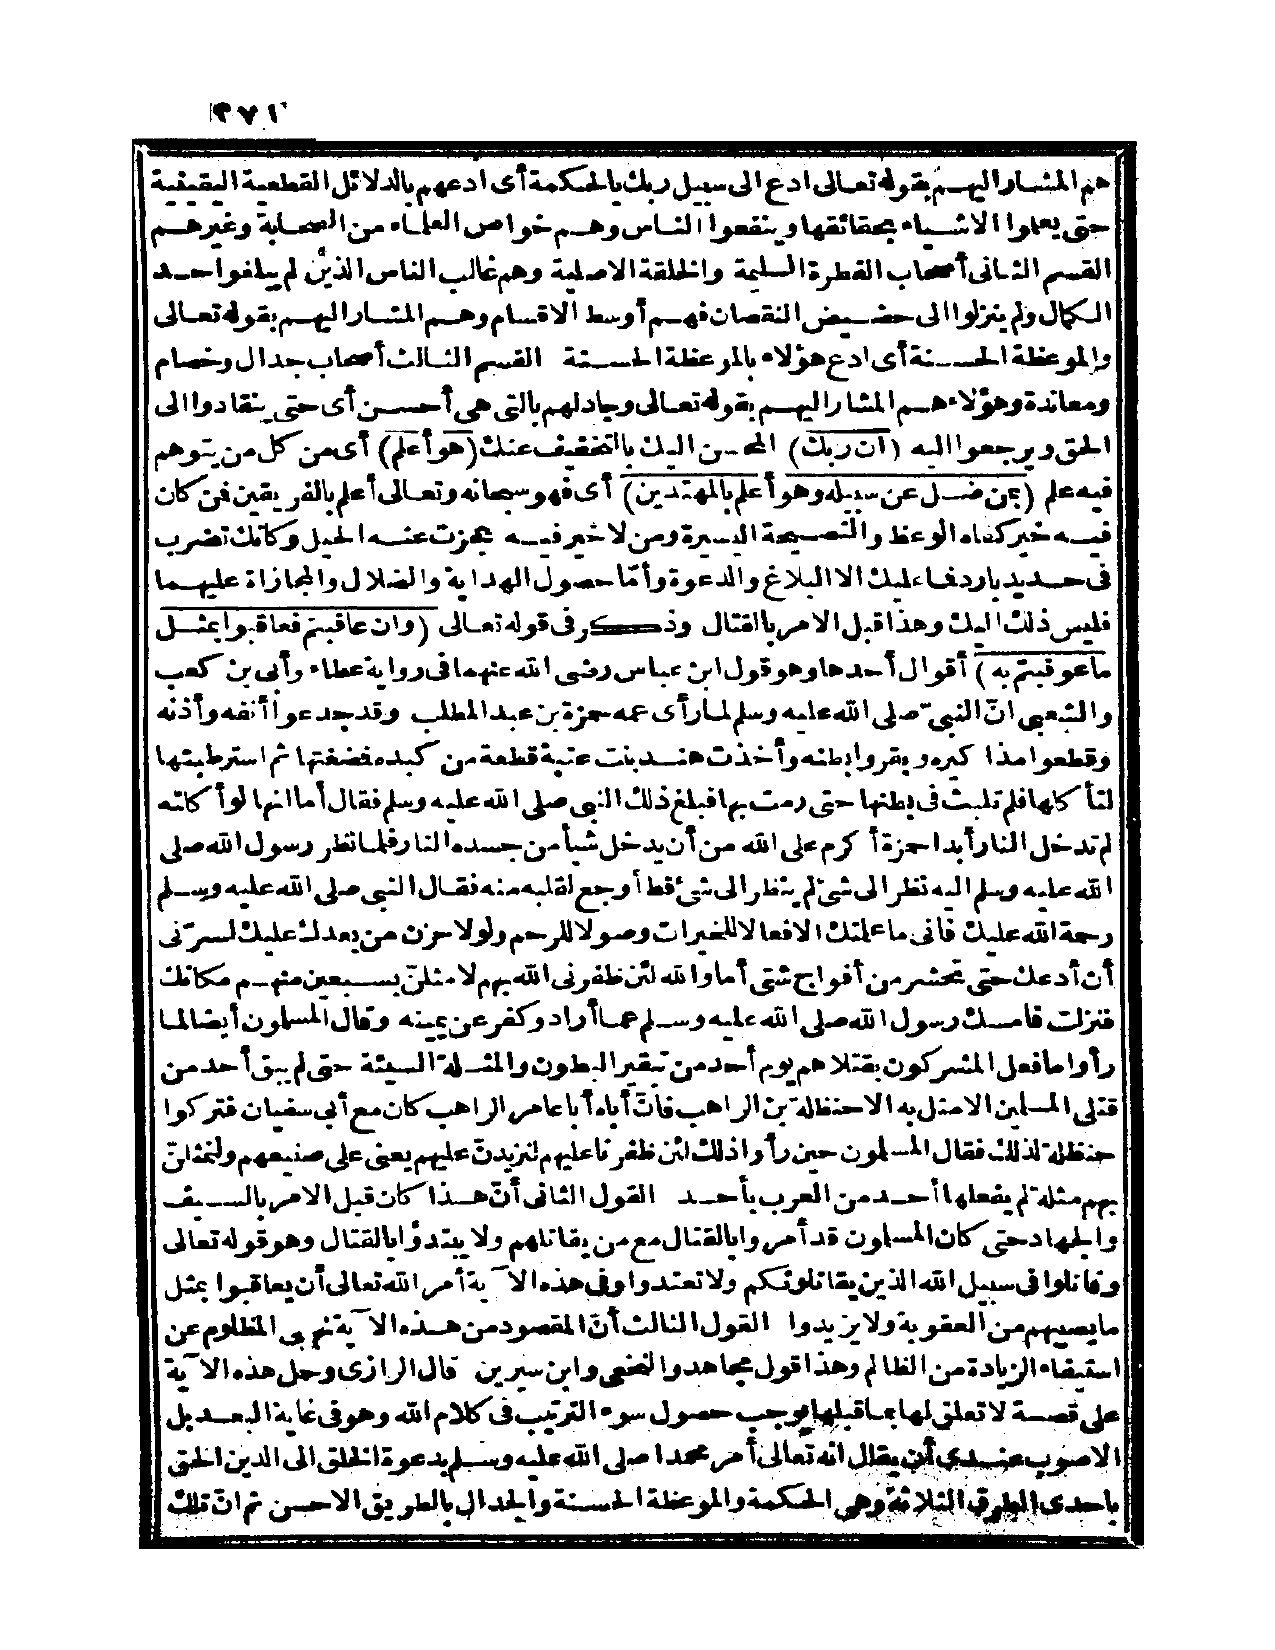 ٢٧١
هم المشار اليهم بقوله تعالى ادع الى سبيل ربك بالحكمة أى ادعهم بالدلائل القطعية اليقينية
حتى يعلموا الاشياء بحقائقها وينفعوا الناس وهم خواص العلماء من الصحابة وغيرهم
القسم الثانى أصحاب الفطرة السليمة والخلقة الاصلية وهم غالب الناس الذين لم يبلغوا حد
الكمال ولم ينزلوا الى حضيض النقصان فهم أوسط الاقسام وهم المشار اليهم بقوله تعالى
والموعظة الحسنة أى ادع هؤلاء بالموعظة الحسنة القسم الثالث أصحاب جدال وخصام
ومعاندة وهؤلاء هم المشار اليهم بقوله تعالى وجادلهم بالتى هى أحسن أى حتى ينقادوا الى
الحق ويرجعوا اليه (ان ربك) المحسن اليك بالتخفيف عنك (هو أعلم) أى من كل من يتوهم
فيه علم (بمن ضل عن سبيله وهو أعلم بالمهتدين) أى فهو سبحانه وتعالى أعلم بالفريقين فمن كان
فيه خير كفاه الوعظ والنصيحة اليسيرة ومن لا خير فيه عجزت عنه الحيل وكانك تضرب
فى حديد بارد فما عليك الا البلاغ والدعوة وأما حصول الهداية والضلال والمجازاة عليهما
فليس ذلك اليك وهذا قبل الامر بالقتال وذكر فى قوله تعالى (وان عاقبتم فعاقبوا بمثل
ما عوقبتم به) أقوال أحدها وهو قول ابن عباس رضى الله عنهما فى رواية عطاء وأبى بن كعب
والشعبى انّ النبىّ صلى الله عليه وسلم لما رأى عمه حمزة بن عبد المطلب وقد جدعوا أنفه وأذنه
وقطعوا مذا كيره وبقروا بطنه وأخذت هند بنت عتبة قطعة من كبده فمضغتها ثم استرطبتها
لتأكلها فلم تلبث فى بطنها حتى رمت بها فبلغ ذلك النبى صلى الله عليه وسلم فقال أما انها لو أكلته
لم تدخل النار أبدا حمزة أكرم على الله من أن يدخل شيأ من جسده النار فلما نظر رسول الله صلى
الله عليه وسلم اليه نظر الى شئ لم ينظر الى شئ قط أوجع لقلبه منه فقال النبى صلى الله عليه وسلم
رحمة الله عليك فانى ما علمتك الا فعالا للخيرات وصولا للرحم ولولا حزن من بعدك عليك لسرّنى
أن أدعك حتى تحشر من أفواج شتى أما والله لئن ظفرنى الله بهم لامثلنّ بسبعين منهم مكانك
فنزلت فامسك رسول الله صلى الله عليه وسلم عما أراد وكفر عن يمينه وقال المسلمون أيضا لما
رأوا ما فعل المشركون بقتلاهم يوم أحد من تبقير البطون والمثلة السيئة حتى لم يبق أحد من
قتلى المسلمين الا مثل به الا حنظلة بن الراهب فانّ أباه أبا عامر الراهب كان مع أبى سفيان فتركوا
حنظلة لذلك فقال المسلمون حين رأوا ذلك لئن ظفرنا عليهم لنزيدنّ عليهم يعنى على صنيعهم ولنمثلنّ
بهم مثلة لم يفعلها أحد من العرب بأحد القول الثانى أنّ هذا كان قبل الامر بالسيف
والجهاد حتى كان المسلمون قد أمروا بالقتال مع من يقاتلهم ولا يبتدؤا بالقتال وهو قوله تعالى
وقاتلوا فى سبيل الله الذين يقاتلونكم ولا تعتدوا وفى هذه الآية أمر الله تعالى أن يعاقبوا بمثل
ما يصيبهم من العقوبة ولا يزيدوا القول الثالث أنّ المقصود من هذه الآية نهى المظلوم عن
استيفاء الزيادة من الظالم وهذا قول مجاهد والنخعى وابن سيرين قال الرازى وحمل هذه الآية
على قصة لا تعلق لها بما قبلها يوجب حصول سوء الترتيب فى كلام الله وهو فى غاية البعد بل
الاصوب عندى أن يقال انه تعالى أمر محمدا صلى الله عليه وسلم بدعوة الخلق الى الدين الحق
باحدى الطرق الثلاثة وهى الحكمة والموعظة الحسنة والجدال بالطريق الاحسن ثم انّ تلك